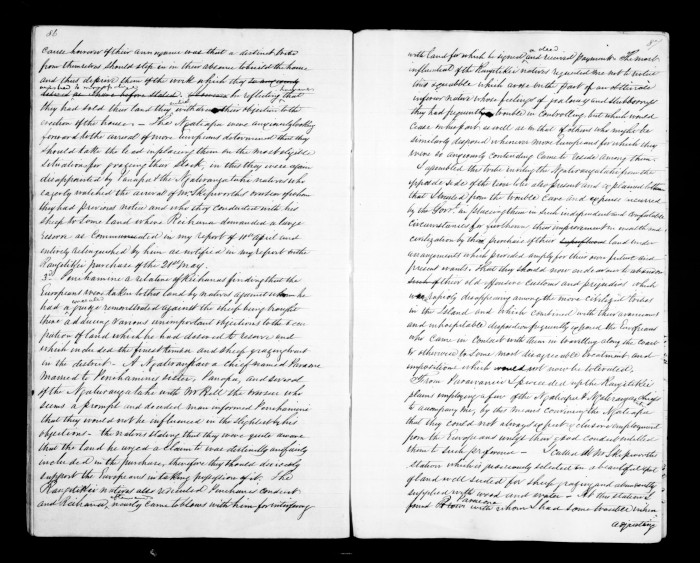 86
cause horror of their annoyance was that a distinct tribe
from themselves should step in in their absence to build the house
and thus deprive them of the work which they so anxiously
desired as before stated. by reflecting that
they had sold their land they withdrew their objection to the
erection of the house — The Ngatiapa were anxiously looking
forward to the arrival of more Europeans determined that they
should take the lead in placing them on the most eligible
situations for grazing their stock, in this they were again
disappointed by Panapa & the Ngatiraukawa natives who
eagerly watched the arrival of Mr Skipworth's vendor of whom
they had previous notice and who they conducted with his
sheep to some land where Reihana demanded a large
reserve as communicated in my report of 10th April and
entirely relinquished by him as notified in my report on the
Rangitikei purchase of the 21st May.
3rd Penehamine a relative of Reihana's finding that the
Europeans were taken to this land by natives against whom he
had a grudge remonstrated against the sheep being brought
there adducing various unimportant objections to the occu
pation of land which he had desired to reserve and
which included the finest timber and sheep grazing land
in the district — A Ngatiraukawa chief named Paraone
married to Penehamine's sister, Panapa, and several
of the Ngatiraukawa with Mr Bell the owner who
seems a prompt and decided man informed Penehamine
that they would not be influenced in the slightest by his
objections — the natives stating that they were quite aware
that the land he urged a claim to was distinctly and fairly
included in the purchase, therefore they should decisively
support the Europeans in taking possession of it. The
Rangitikei natives also resented Penehamine's conduct
and Reihana, nearly came to blows with him for interfering
87
with land for which he signed a deed and received payment. The most
influential of the Rangitikei natives regarded this not to notice
this squabble which arose on the part of an illiterate
inferior native whose feelings of jealousy and stubbornness
they had frequently trouble in controlling but which would
cease on his part as well as on that of others who might be
similarly disposed whenever more Europeans for which they
were so anxiously contending came to reside among them.
I assembled this tribe inviting the Ngatiraukawa from the
opposite side of the river to be also present and explained to them
that I trusted from the trouble care and expense incurred
by the Govt. in placing them in such independent and comfortable
circumstances for furthering their improvement in wealth and
civilization by the purchase of their land under
arrangements which provided amply for their own future and
present wants. that they should now endeavour to abandon
such of their old offensive customs and prejudices which
were rapidly disappearing among the more civilized tribes
in the Island and which combined with their avaricious
and inhospitable disposition frequently exposed the Europeans
who came in contact with them in travelling along the coast
or otherwise to some most disagreeable treatment and
impositions which would not now be tolerated.
From Parawanui I proceeded up the Rangitikei
plains employing a few of the Ngatiapa & Ngatiraukawa chiefs
to accompany me, by this means convincing the Ngatiapa
that they could not always expect exclusive employment
from the Europeans unless their good conduct entitled
them to such preference — I called at Mr Skipworth's
station which is judiciously selected in a beautiful spot
of land well suited for sheep grazing and abundantly
supplied with wood and water — At this station I
found Paraone with whom I had some trouble when
adjusting